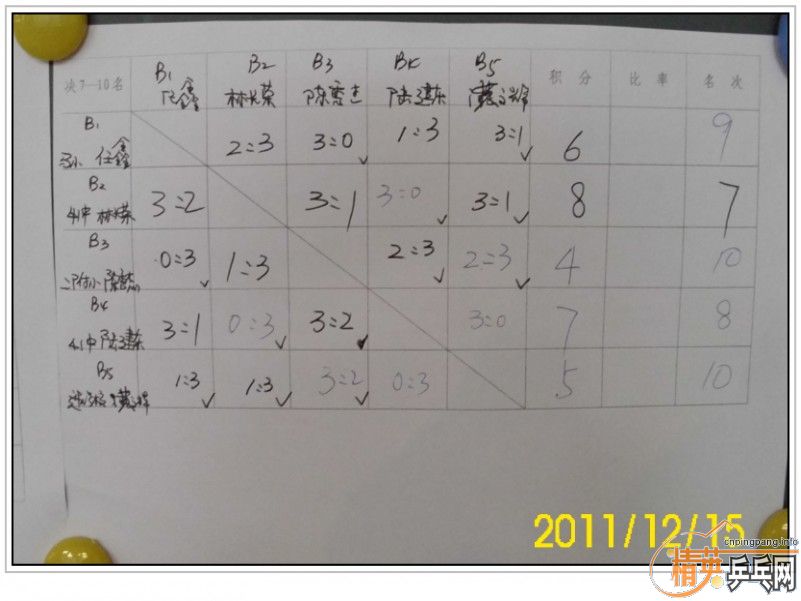 决7-10名 B1 任鑫 B2 林长荣 B3 陈 B4 陆建东 B5 积分 比率 名次
B1 任鑫 2:3 3:0 1:3 3:1 6 9
B2 4中 林长荣 3:2 3:1 3:0 3:1 8 7
B3 0:3 1:3 2:3 2:3 4 10
B4 4中 陆建东 3:1 0:3 3:2 3:0 7 8
B5 1:3 1:3 3:2 0:3 5 10
2011/12/15
cnpingpang.info
精英乒乓网